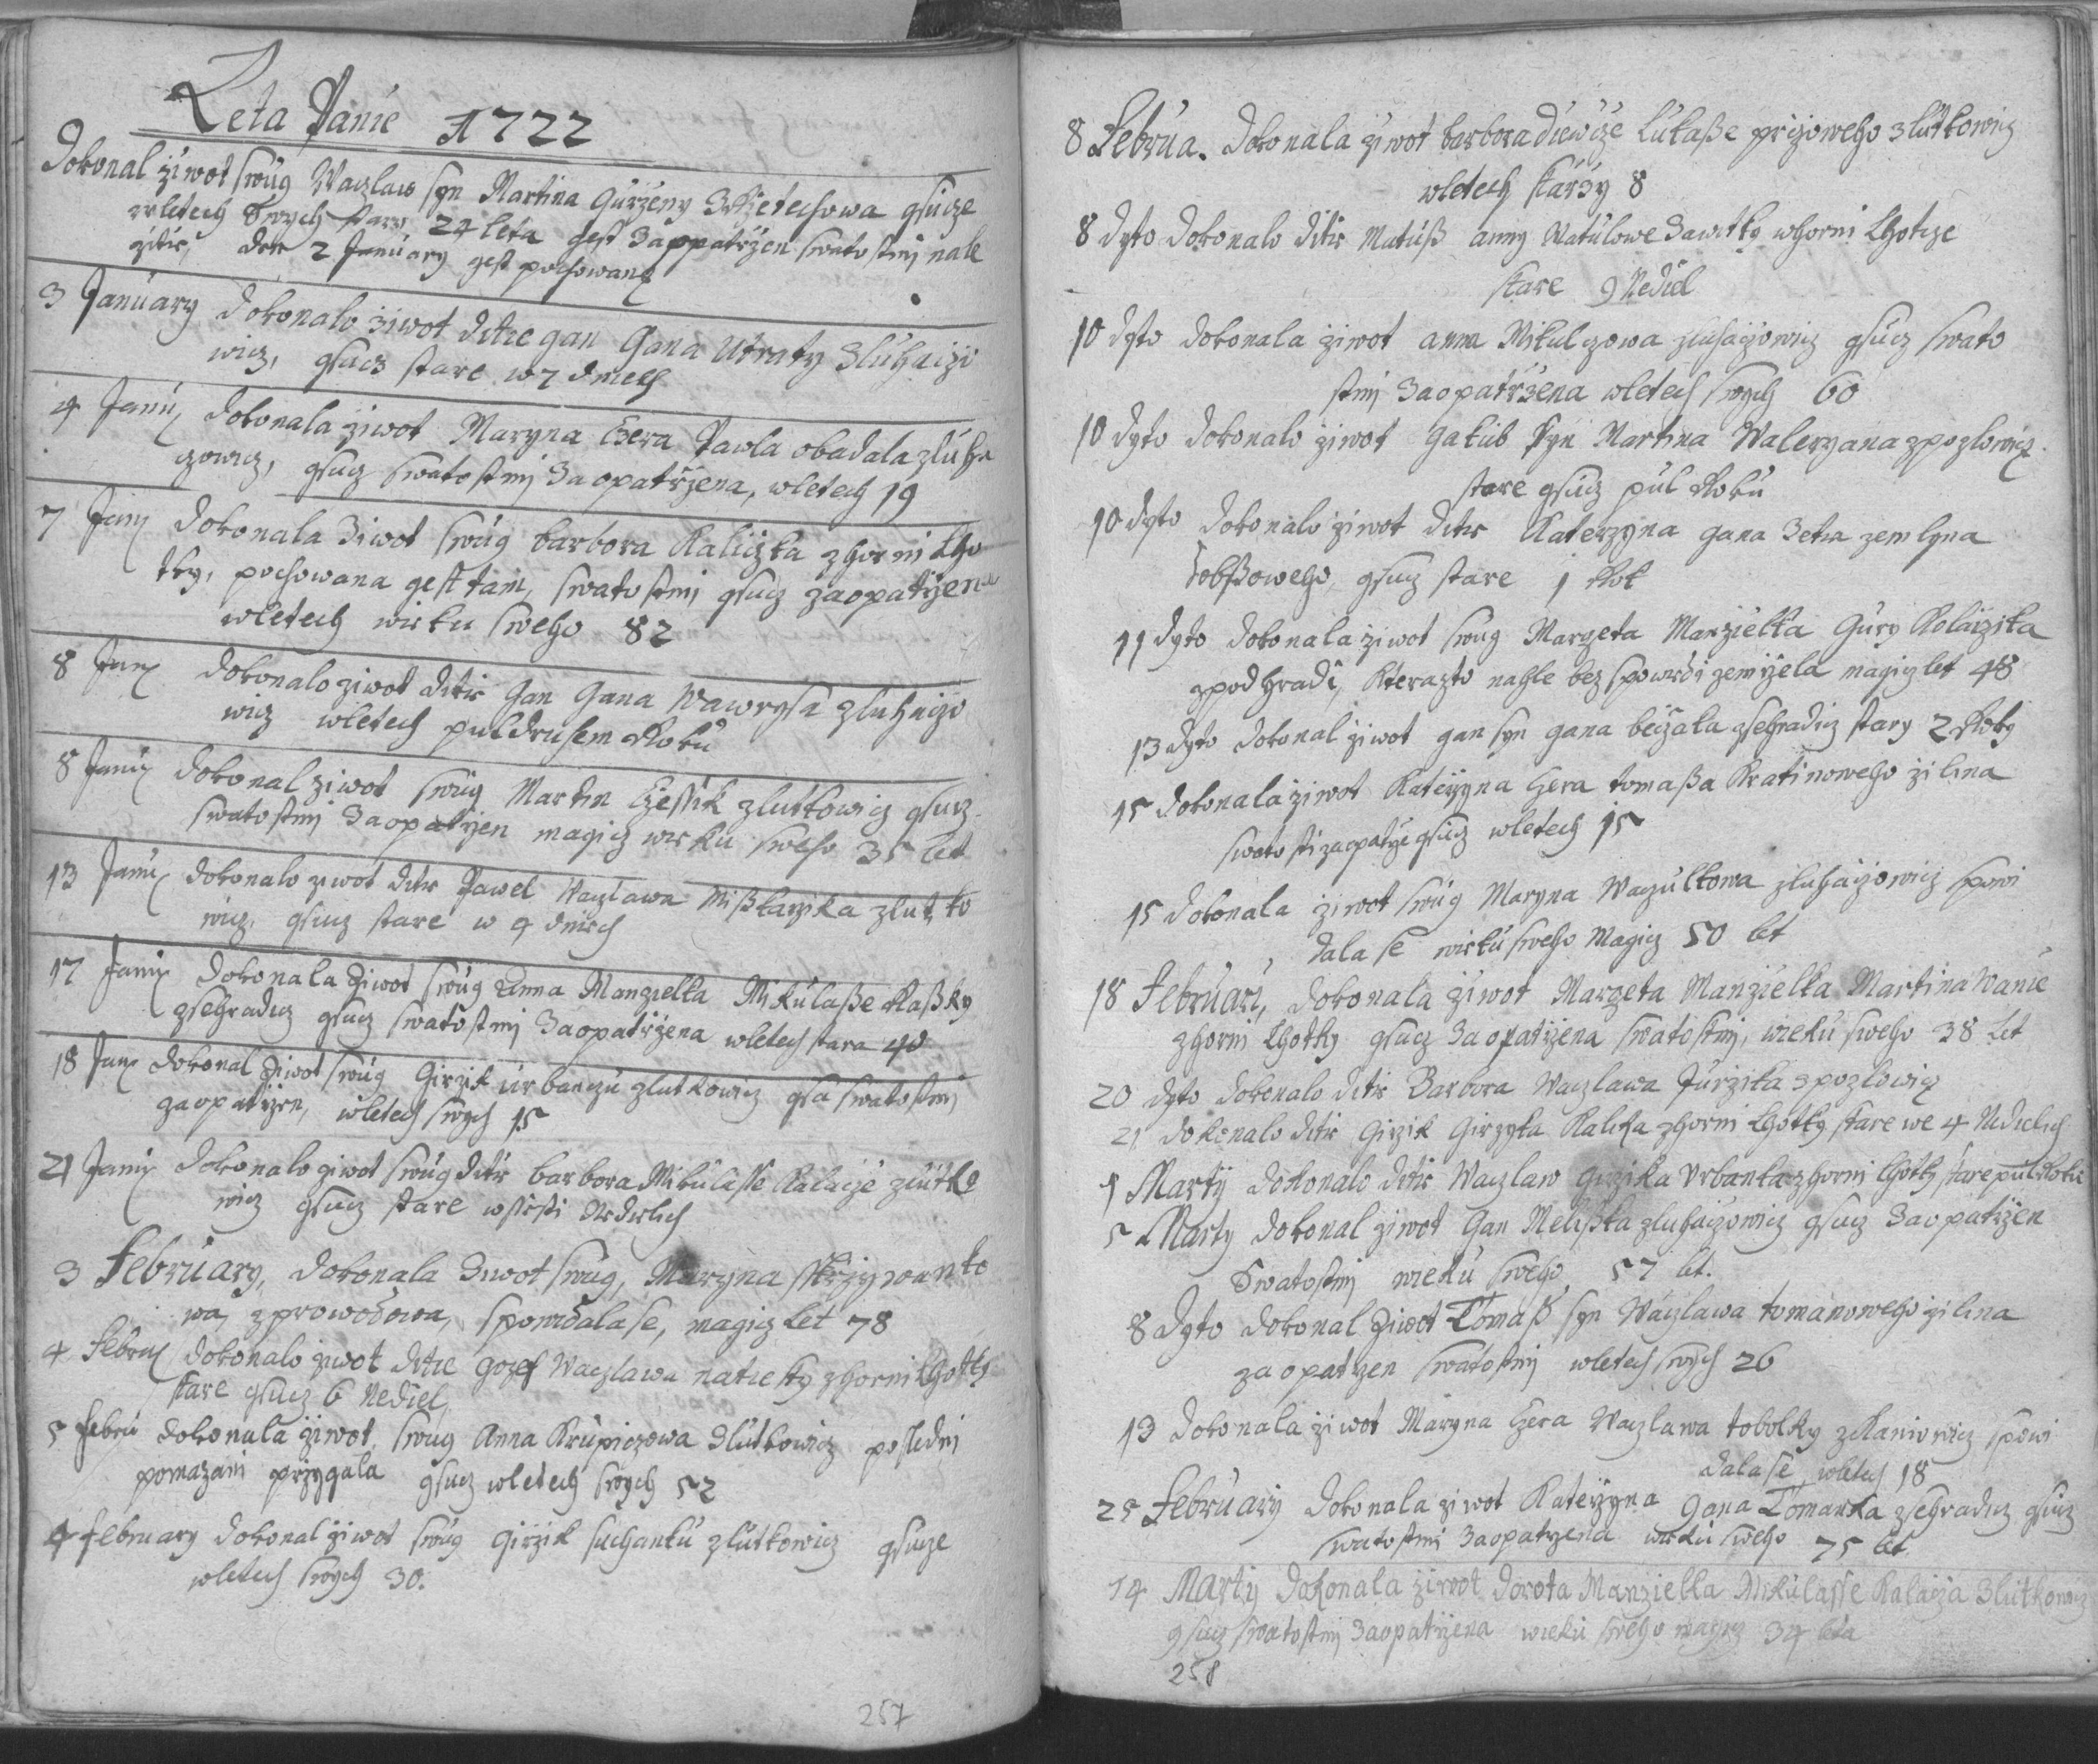 Leta Panie 1722
Dokonal ziwot swůg Waczlaw syn Martina Gurzeny gsucze
wletech Swych stary 24 leta gest Zaoppatrzen swatostmi nale
zitie, den 2 January gest pochowany
3 January Dokonalo ziwot ditie gan Gana Utraty Zluhaczo
wicz, gsucz stare w 7 dnech
4 Janu Dokonala ziwot Maryna Czera Pawla obadala zluha
czowicz, gsucz swatostmi Zaopatrzena, wletech 19
7 Janu Dokonala Ziwot swůg barbora Kaliczka z horni Lho
tky, pochowana gest tam, swatostmi gsucz zaopatrzena
wletech wieku sweho 82
8 Janu Dokonalo ziwot ditie Gan Gana Wawrysa zluhaczo
wicz wletech puldruhem Roku
8 Janu Dokonal ziwot swůg Martin zlutkowicz gsucz
swatostmi Zaopatrzen magicz wieku sweho 35 let
13 Janu dokonalo ziwot ditie Pawel Waczlawa Mißkarzika zlutko
wicz, gsucz stare w 4 dnech
17 Janu Dokonala Ziwot swůg Anna Manzielka Mikulaße Raßky
zsehradicz gsucz swatostmi Zaopatrzena wletech stara 40
18 Janu Dokonal Ziwot swůg Girzik urbanczu zlutkowicz gsa swatostmi
zaopatrzen, wletech swych 15
21 Janu Dokonalo ziwot swůg ditie barbora Mikulasse Kalacze zlutko
wicz gsucz stare wssesti Nedielich
3 February, Dokonala Ziwot swůg, Maryna skrzywanko
wa, z prowodowa, spowidala se, magicz Let 78
4 Febru Dokonalo ziwot ditie Gozef Waczlawa z horni Lhotky
stare gsucz 6 Nediel,
5 Febru Dokonala ziwot swůg Anna Krupiczowa Zlutkowicz posledni
pomazani przygala gsucz wletech swych 52
4 February Dokonal ziwot swůg Girzik suchanku zlutkowicz gsucze
wletech swych 30.
257
8 Februa. Dokonala ziwot barbora diewcze Lukaße zlutkowicz
wletech starzy 8
8 dyto Dokonalo ditie Matuß anny Matulowe w horni Lhotcze
stare 9 Nediel
10 dyto dokonala ziwot anna Mikulczowa zluhaczowicz gsucz swato
stmi Zaopatrzena wletech swych 60
10 dyto Dokonalo ziwot Jakub syn Martina Waleryana z pozlowicz
stare gsucz půl Roku
10 dyto Dokonalo ziwot ditie Katerzyna gana Zetia
gsucz stare 1 Rok
11 dyto Dokonala ziwot swůg Margeta Manzielka Gury Kolarzika
zpod hradi, kterazto nahle bez spowiedi zemrzela magicz let 48
13 dyto dokonal ziwot gan syn gana zsehradicz stary 2 Roky
15 Dokonala ziwot Katerzyna Czera tomaßa Kratinoweho zilina
swatosti zaopatrze gsucz wletech 15
15 Dokonala ziwot swůg Maryna Waczulkowa zluhaczowicz spowi
dala se wieku sweho Magicz 50 let
18 Februari, Dokonala ziwot Margeta Manzielka Martina Wanie
z horni Lhotky gsucz Zaopatrzena swatostmi, wieku sweho 38 Let
20 dyto Dokonalo ditie Barbora Waczlawa Jurzika z pozlowicz
21 dokonalo ditie Girzik Girzyka Kalicha z horni Lhotky stare we 4 Nedielich
1 Marty dokonalo ditie Waczlaw Girzika Urbanka z horni Lhotky stare půl Roku
5 Marty Dokonal ziwot Gan Melißka zluhaczowicz gsucz Zaopatrzen
Swatostmi wieku sweho 57 let.
8 Dyto Dokonal Ziwot Tomaß syn Waczlawa tomanoweho zilina
zaopatrzen swatostmi wletech swych 26
13 Dokonala ziwot Maryna Czera Waczlawa tobolky z Kaniowicz spowi
dala se, wletech 18
25 February Dokonala ziwot Katerzyna Gana Tomanka zsehradicz gsucz
swatostmi Zaopatrzena wieku sweho 75 let
14 Marty Dokonala ziwot Dorota Manzielka Mikulasse Kalacza Zlutkowicz
gsucz swatostmi Zaopatrzena wieku sweho magicz 34 leta
258